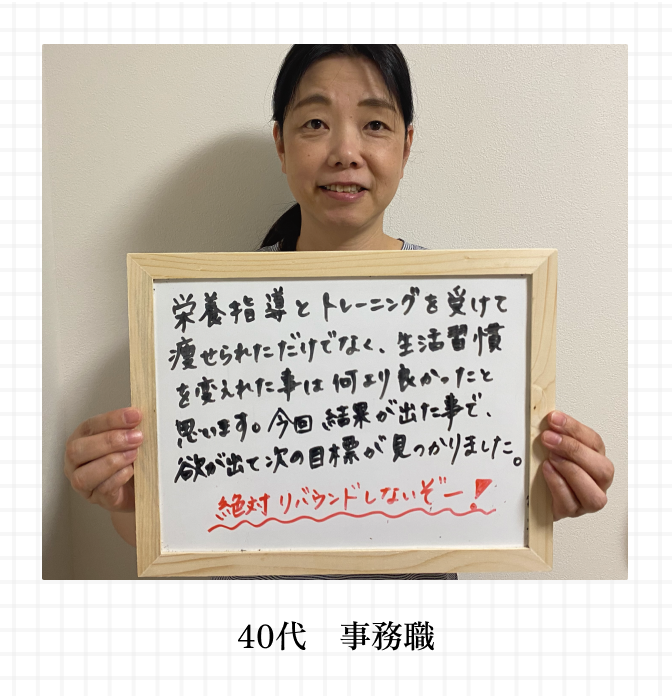 栄養指導とトレーニングを受けて
痩せられただけでなく、生活習慣
を変えれた事は何より良かったと
思います。今回結果が出た事で、
欲が出て次の目標が見つかりました。
絶対リバウンドしないぞー!
40代 事務職